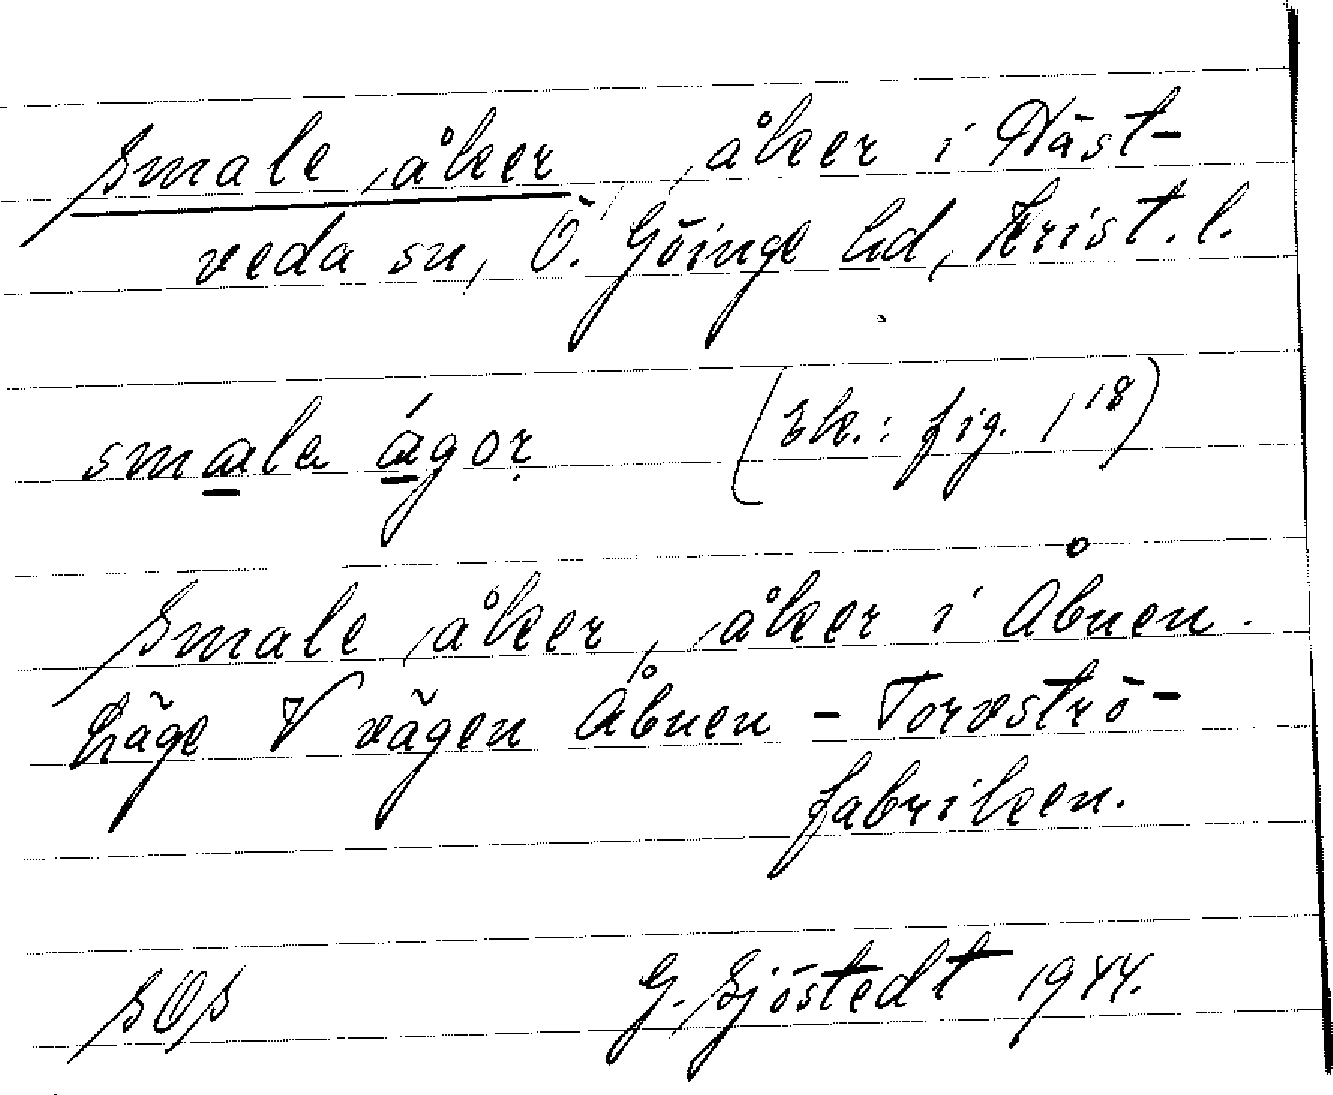 Smale åker, åker i Näst-
veda sn, Ö. Göinge hd, Krist. l.
smala ágor (Ek.: fig. 1 18)
Smale åker, åker i Åbuen.
Läge V vägen Åbuen - Torvströ-
fabriken.
SOS G. Sjöstedt 1944.